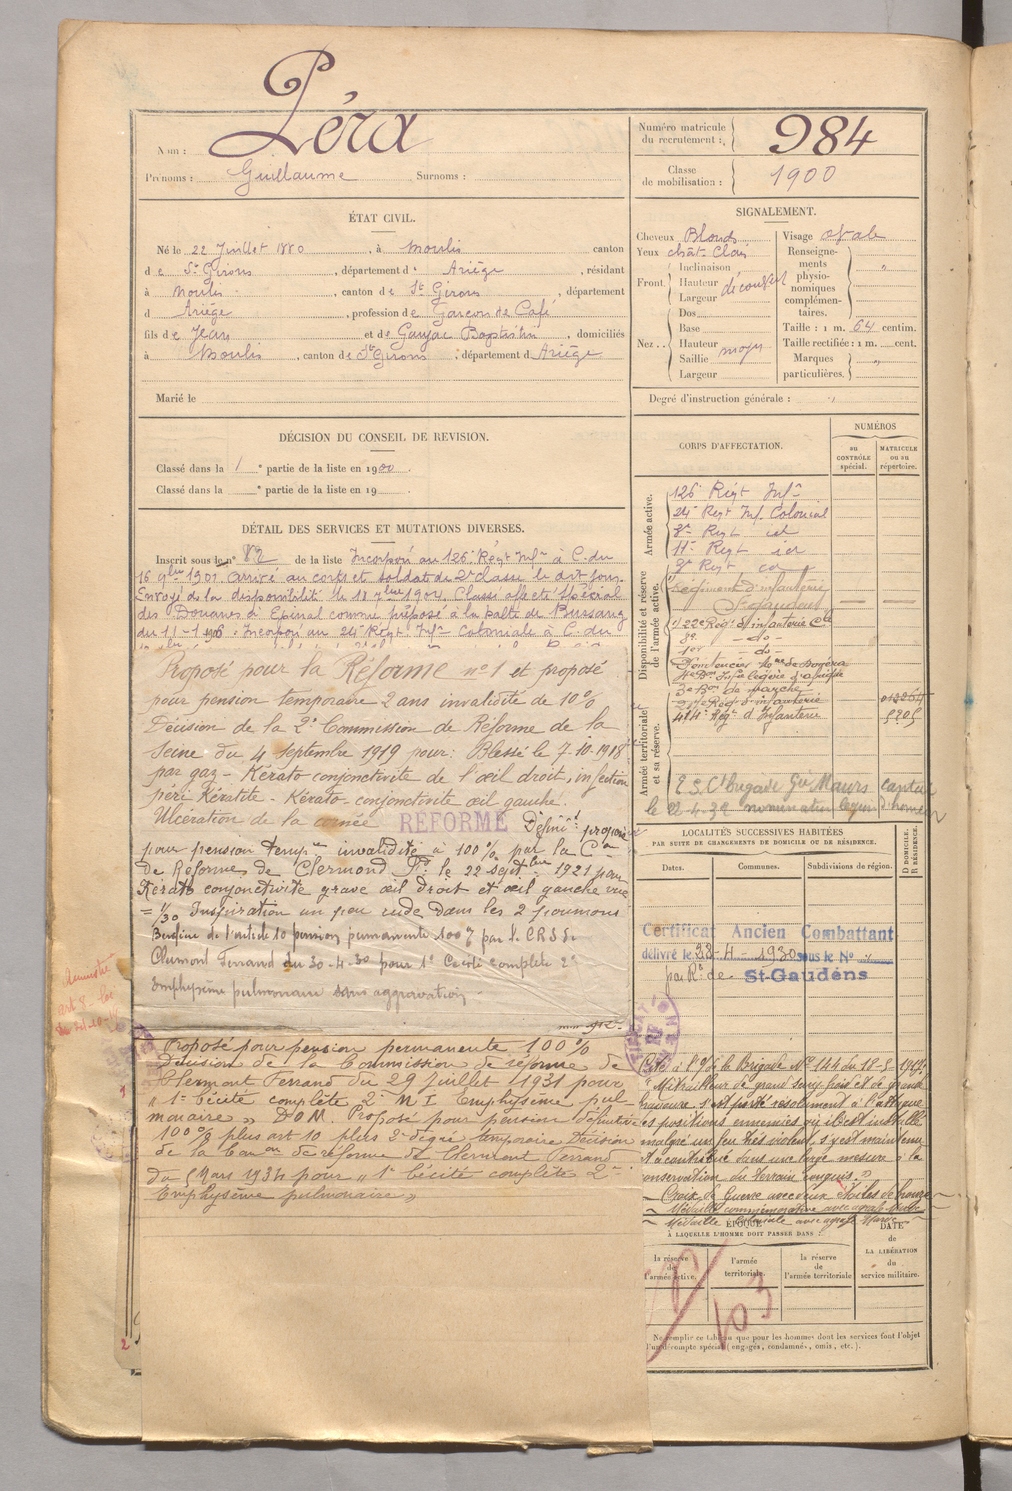 Nom : Péra
Prénoms : Guillaume Surnoms :
Numéro matricule du recrutement : 984
Classe de mobilisation : 1900
ÉTAT CIVIL.
Né le 22 Juillet 1880, à Moulis canton
de St Girons, département de Ariège, résidant
à Moulis, canton de St Girons, département
d Ariège, profession de Garçon de Café
fils de Jean et de Baptistin, domiciliés
à Moulis, canton de St Girons, département d Ariège
Marié le
SIGNALEMENT.
Cheveux Blonds
Yeux chât. Clair
Front. Inclinaison
Hauteur découvert
Largeur
Nez . . Dos
Base
Hauteur
Saillie moyen
Largeur
Visage ovale
Renseignements physionomiques complémentaires. "
Taille : 1 m. 64 centim.
Taille rectifiée : 1 m. cent.
Marques particulières. "
Degré d'instruction générale : "
DÉCISION DU CONSEIL DE REVISION.
Classé dans la 1e partie de la liste en 1900.
Classé dans la e partie de la liste en 19 .
DÉTAIL DES SERVICES ET MUTATIONS DIVERSES.
Inscrit sous le n° 82 de la liste Incorporé au 126e Régt Infie à C. du
16 9bre 1901 arrivé au corps et soldat de 2e classe le dit jour.
Envoyé de la disponibilité le 18 7bre 1904. Classé affecté spécial
des Douanes d'Epinal comme préposé à la patte de Bussang
du 11-1-1906. Incorporé au 24e Régt Infie Coloniale à C. du
Proposé pour la Réforme n° 1 et proposé
pour pension temporaire 2 ans invalidité de 10%
Décision de la 2e Commission de Réforme de la
Seine du 4 septembre 1919 pour : Blessé le 7-10-1918
par gaz - Kérato conjonctivite de l'œil droit, infection
péri Kératite - Kérato-conjonctivite œil gauche.
Ulcération de la cornée RÉFORMÉ Définit. proposé
pour pension tempre invalidité à 100% par la Con
de Réforme de Clermond Fd le 22 septbre 1921 pour
Kérato conjonctivite grave œil droit et œil gauche vue
= 1/30 Inspiration un peu rude dans les 2 poumons
Bénéfice de l'article 10 pension permanente 100% par
Clermont Ferrand du 30-4-30 pour 1° Cécité complète 2°
Emphysème pulmonaire sans aggravation
Proposé pour pension permanente 100%
Décision de la Commission de réforme de
Clermont Ferrand du 29 Juillet 1931 pour
"1° Cécité complète 2° Emphysème pul-
monaire" Proposé pour pension définitive
100% plus art 10 plus 2e degré temporaire Décision
de la Comon de réforme de Clermont Ferrand
du 5 Mars 1934 pour "1° Cécité complète 2°
Emphysème pulmonaire"
CORPS D'AFFECTATION.
NUMÉROS
au CONTRÔLE spécial.
MATRICULE ou au répertoire.
Armée active.
126e Régt Infie
24e Régt Inf. Colonial
8e Régt id
11e Régt id
2e Régt id
Disponibilité et réserve de l'armée active.
Régiment d'infanterie
St Gaudens
22e Rég. d'infanterie Cle
8e — do —
1er — do —
Armée territoriale et sa réserve.
3e Bon de marche
Rég. d'infanterie
414e Rég. d'Infanterie
LOCALITÉS SUCCESSIVES HABITÉES
PAR SUITE DE CHANGEMENTS DE DOMICILE OU DE RÉSIDENCE.
Dates. Communes. Subdivisions de région. D DOMICILE. R RÉSIDENCE.
Certificat Ancien Combattant
délivré le 22-4-1930 sous le N°
par Rt de St-Gaudens
Cité à l'O/ de la Brigade N° 144 du 18-5-1917.
"Mitrailleur de grand sang froid et de grande
bravoure, s'est porté résolument à l'attaque
des positions ennemies où il s'est installé
malgré un feu très violent, s'y est maintenu
et a contribué dans une large mesure à la
conservation du terrain conquis."
Croix de Guerre avec deux étoiles de bronze
Médaille commémorative avec agrafe
Médaille Coloniale avec agrafe Maroc
ÉPOQUE
À LAQUELLE L'HOMME DOIT PASSER DANS :
la réserve de l'armée active.
l'armée territoriale.
la réserve de l'armée territoriale
DATE de LA LIBÉRATION du service militaire.
103
Ne remplir ce tableau que pour les hommes dont les services font l'objet
d'un décompte spécial (engagés, condamnés, omis, etc.).
1
2